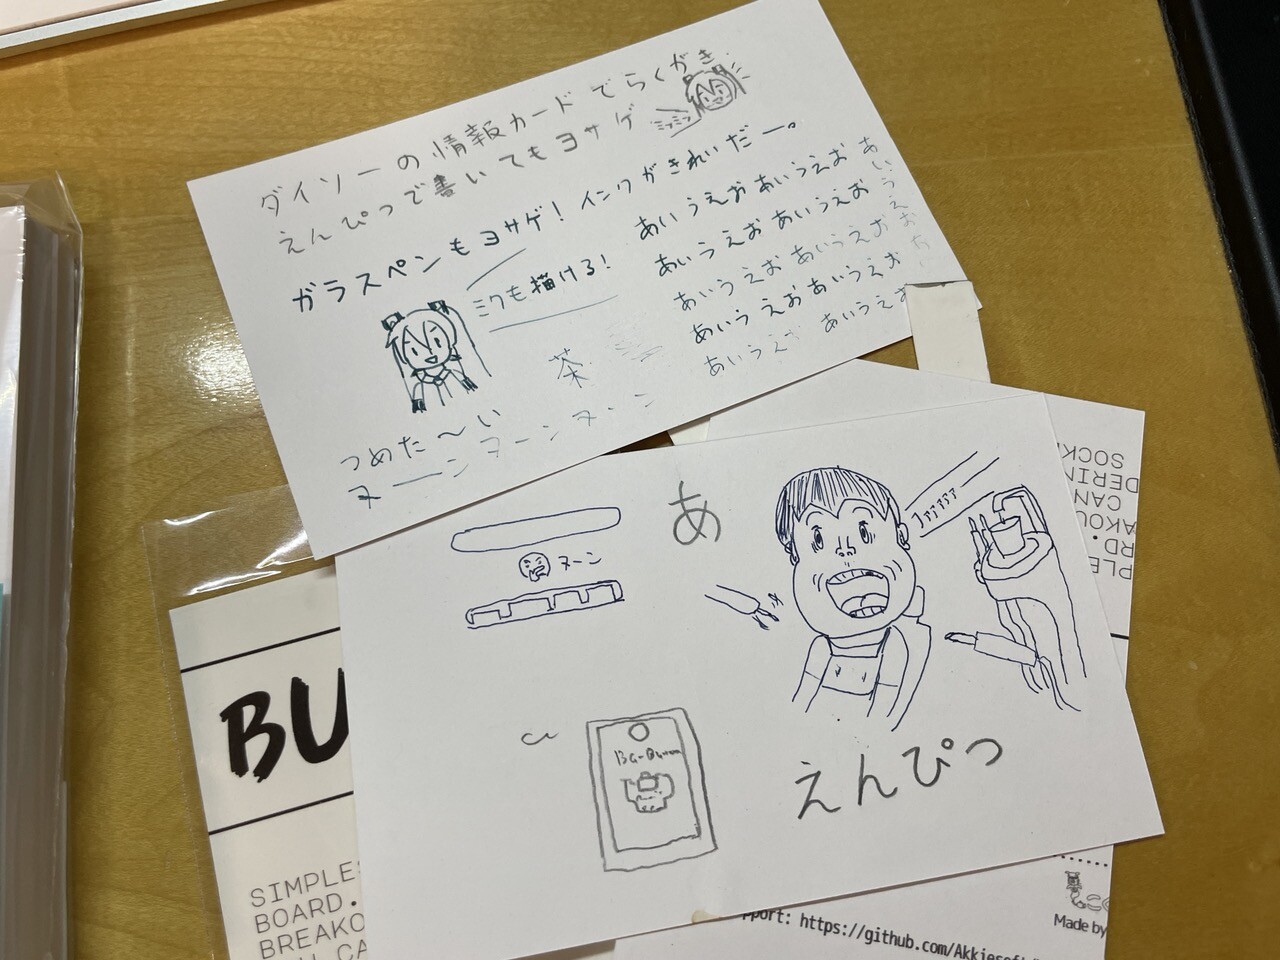 ダイソーの情報カードでらくがき
えんぴつで書いてもヨサゲ
ミクミク
ガラスペンもヨサゲ! インクがきれいだー。
ミクも描ける!
あいうえおあいうえおあいうえお
あいうえおあいうえお
あいうえおあいうえお
あいうえおあいうえお
あいうえ あいうえお
茶
つめた〜い
ヌーンヌーンヌーン
あ
ヌーン
アアアアア
えんぴつ
BU
SIMPLES
BOARD.
BREAKO
SOCK
DERIN
CAN
AKOU
RD.
PLE
pport: https://github.com/Akkiesoft
Made by